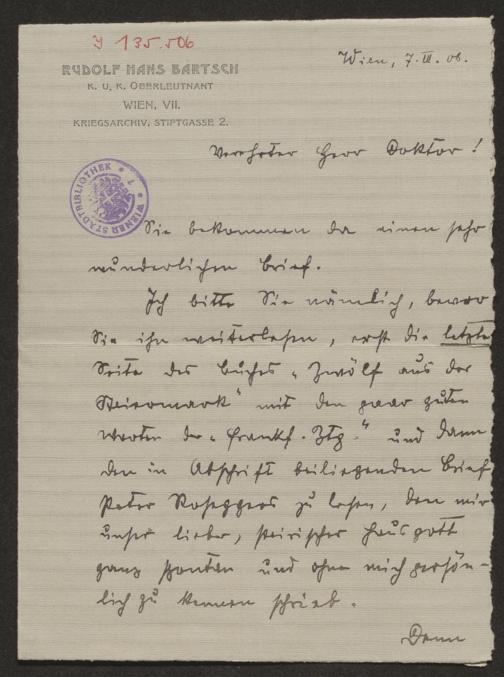 J 135.506
RUDOLF HANS BARTSCH
K. U. K. OBERLEUTNANT
WIEN, VII.
KRIEGSARCHIV, STIFTGASSE 2.
Wien, 7. III. 08.
Verehrter Herr Doktor!
WIENER STADTBIBLIOTHEK
Sie bekommen da einen sehr
wunderlichen Brief.
Ich bitte Sie nämlich, bevor
Sie ihn weiterlesen, erst die letzte
Seite des Buches „Zwölf aus der
Steiermark“ mit den paar guten
Worten der „Frankf. Ztg.“ und dann
den in Abschrift beiliegenden Brief
Peter Roseggers zu lesen, den mir
unser lieber, steirischer Hausgott
ganz spontan und ohne mich persön-
lich zu kennen schrieb.
Denn